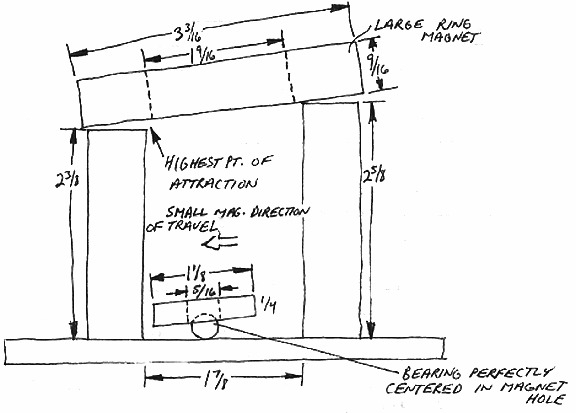 3 3/16
LARGE RING
MAGNET
1 9/16
9/16
HIGHEST PT. OF
ATTRACTION
2 3/8
2 5/8
SMALL MAG. DIRECTION
OF TRAVEL
1 1/8
5/16
1/4
1 7/8
BEARING PERFECTLY
CENTERED IN MAGNET
HOLE